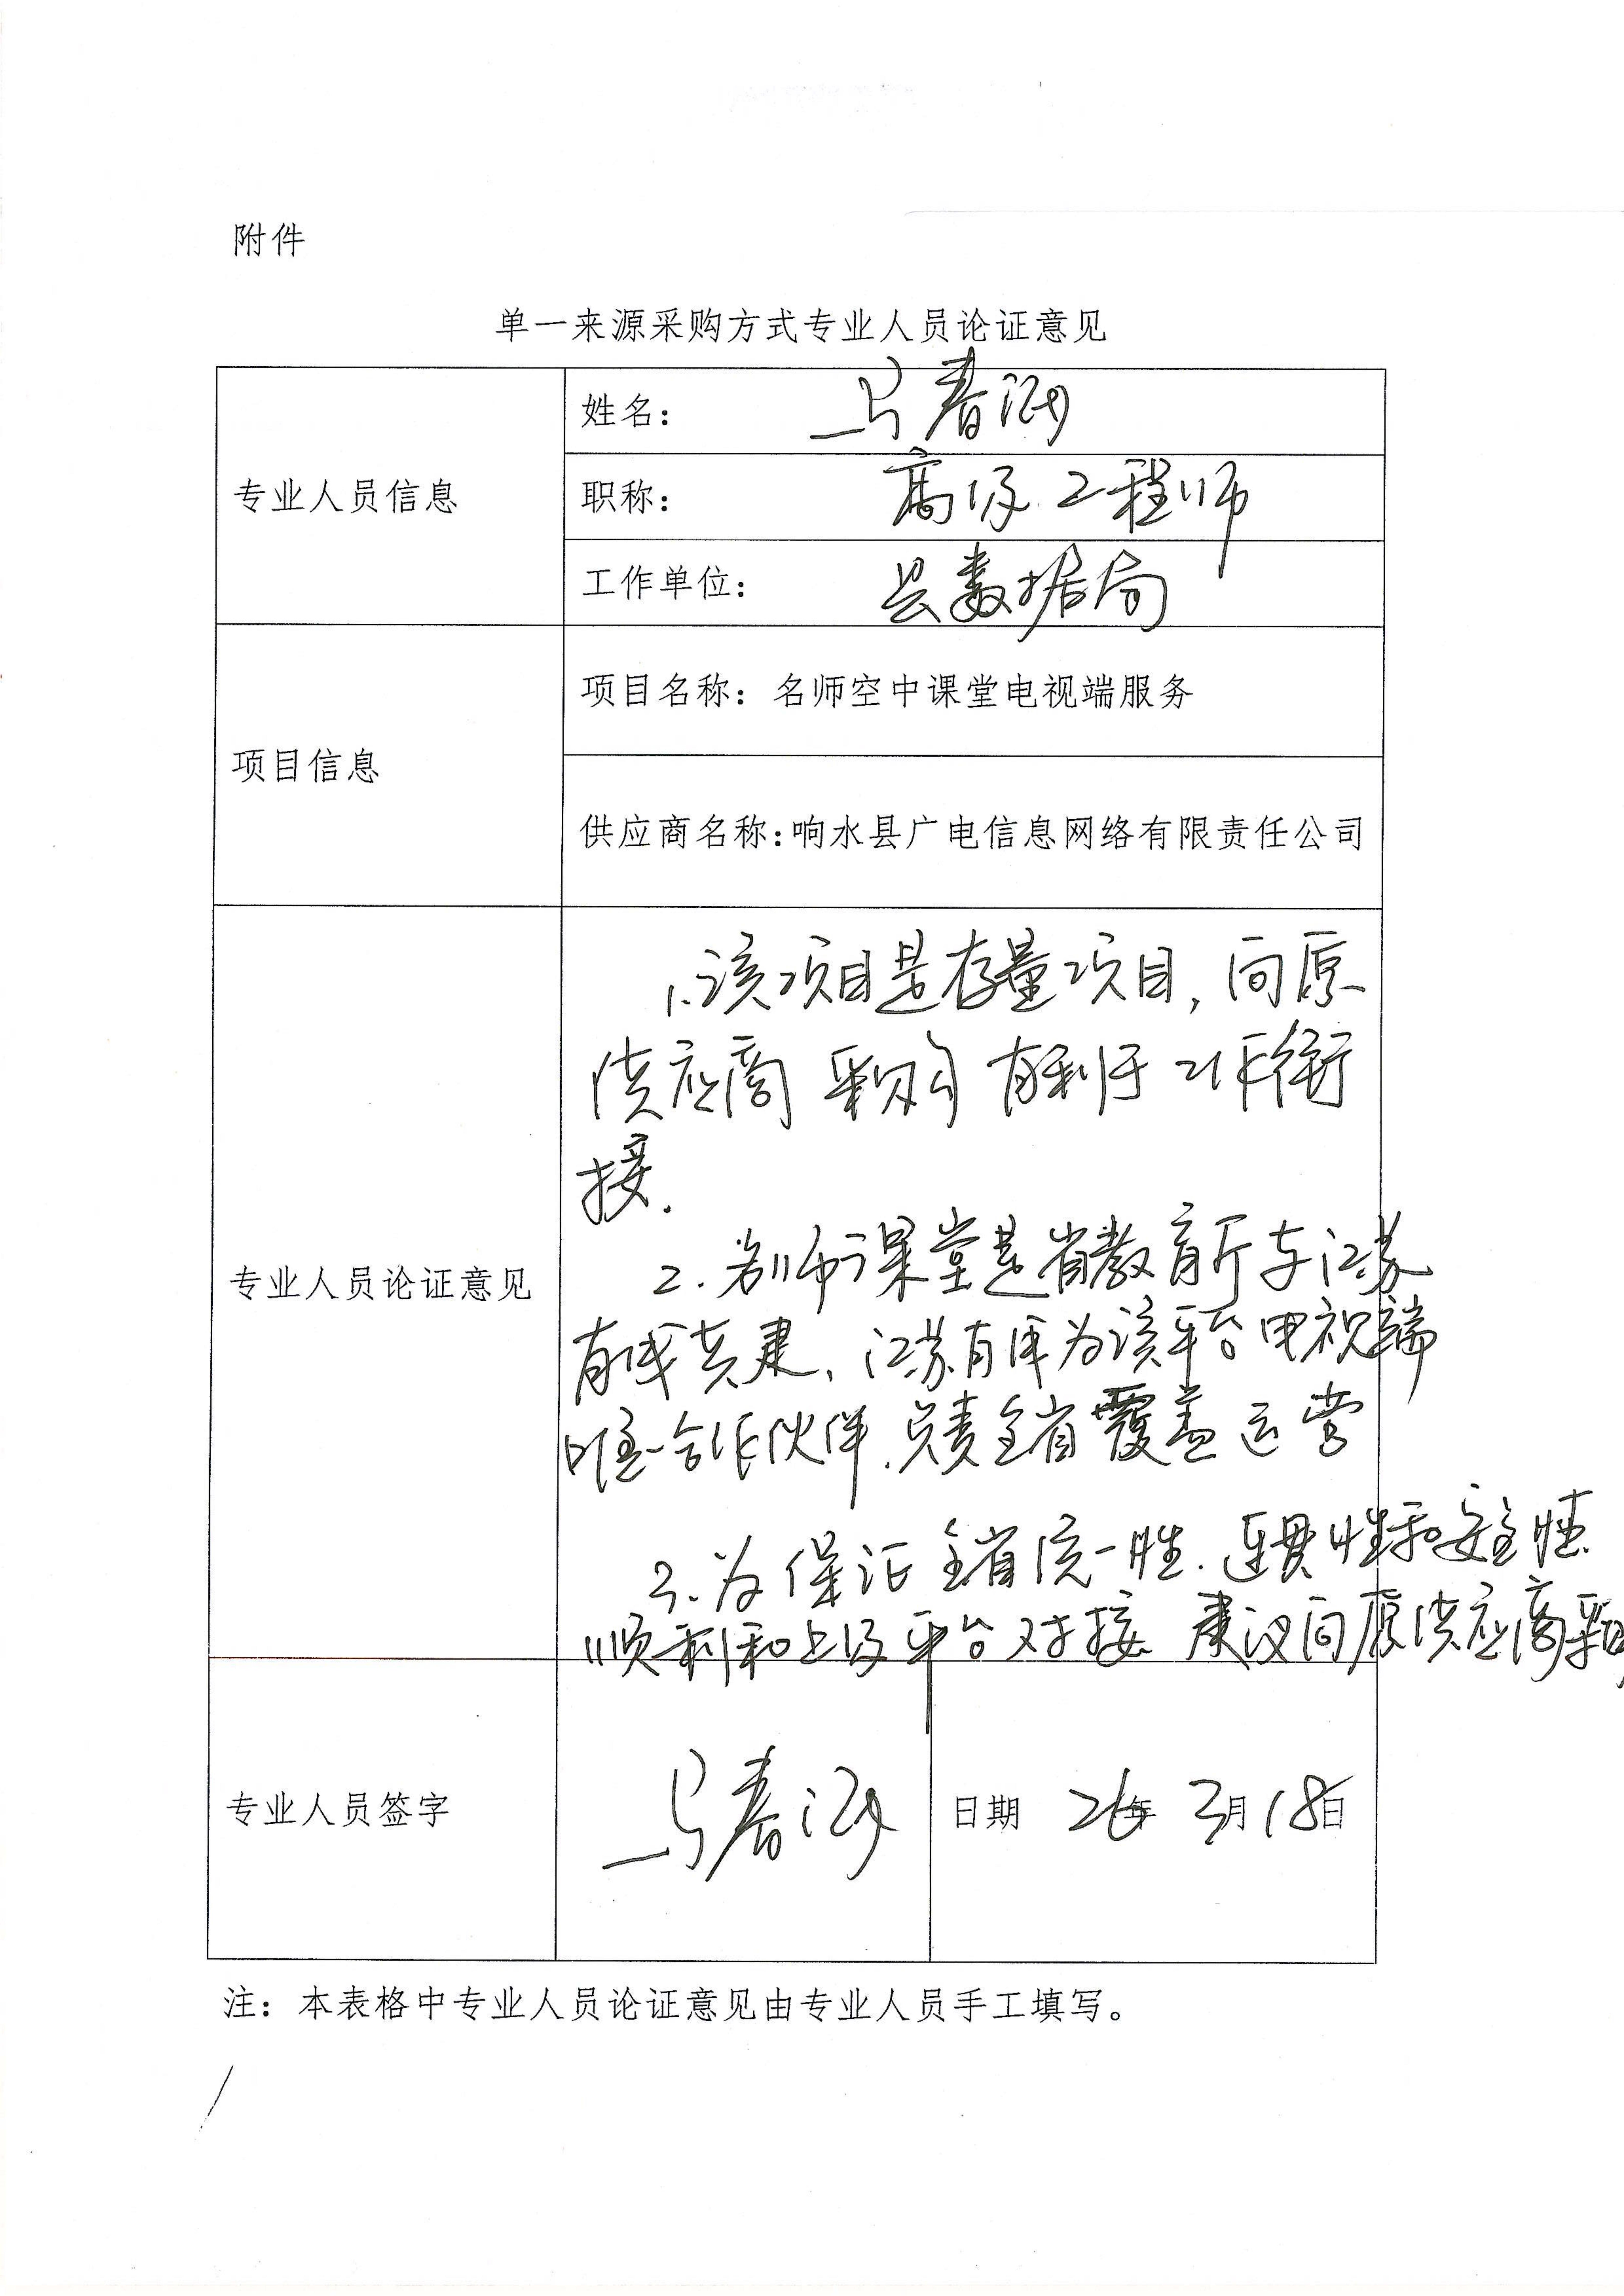 附件
单一来源采购方式专业人员论证意见
专业人员信息
姓名： 马春
职称： 高级工程师
工作单位： 县数据局
项目信息
项目名称：名师空中课堂电视端服务
供应商名称：响水县广电信息网络有限责任公司
专业人员论证意见
1.该项目是存量项目，向原
供应商采购有利于工作衔
接.
2.名师课堂是省教育厅与江苏
有线共建、江苏有线为该平台电视端
唯一合作伙伴.负责全省覆盖运营
3.为保证全省统一性.连贯性和安全性.
顺利和上级平台对接 建议向原供应商采购
专业人员签字
马春
日期 26年 3月18日
注：本表格中专业人员论证意见由专业人员手工填写。